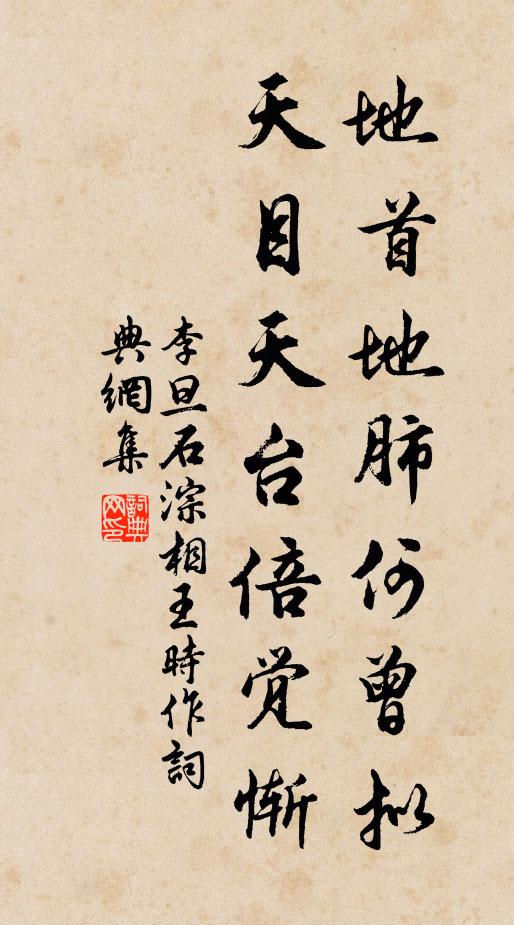 地首地肺何曾拟
天目天台倍觉惭
李旦石淙相王時作詞
典網集
詞典网印